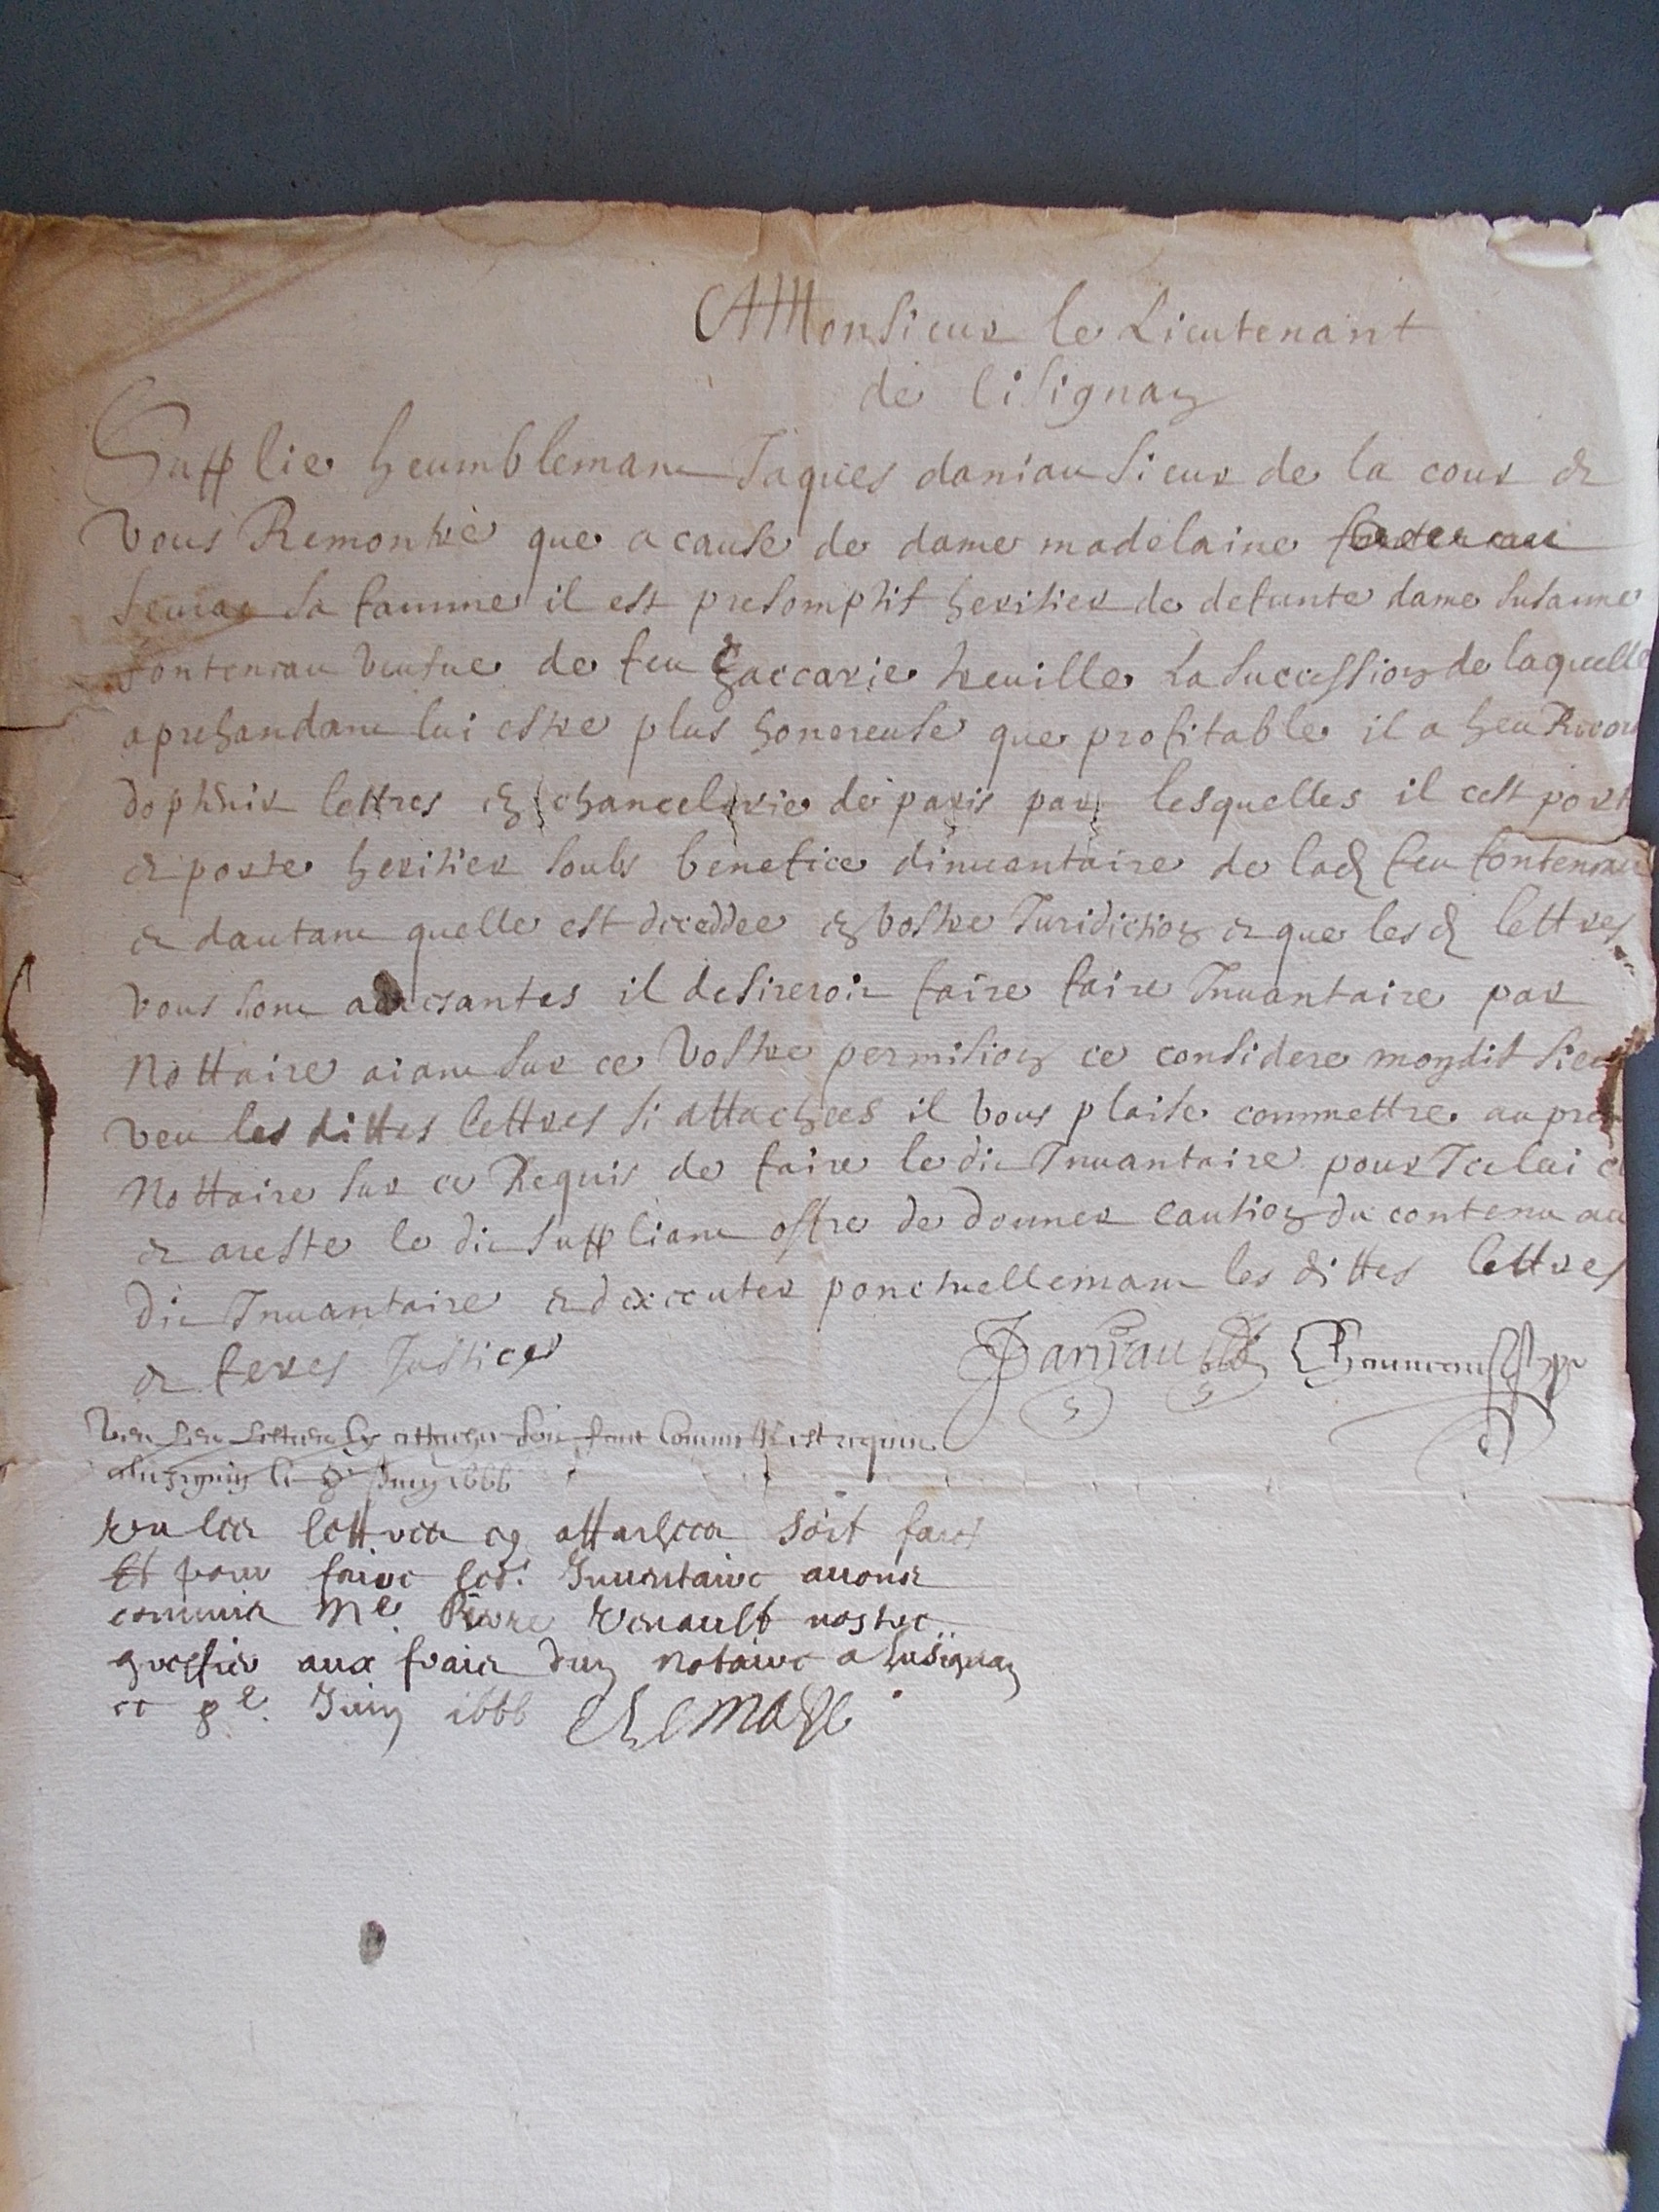 A Monsieur le Lieutenant
de Lisignan
Supplie heumblemant Jaques daniau Sieur de la cour &
vous Remontre que a cause de dame madelaine
sa famme il est presomptif heritier de defunte dame Susanne
fonteneau veufue de feu Zaccarie treuille La Succession de laquelle
aprehandant lui estre plus honereuse que profitable il a heu Recour
dophtenir lettres en chancelerie de paris par lesquelles il cest porte
& porte heritier soubs benefice dinuantaire de lad feu fonteneau
& dautant quelle est deceddee en vostre Juridiction & que les d lettres
vous sont adresantes il desireroit faire faire Inuantaire par
Nottaire aiant sur ce vostre permision ce considere mondit Sieur
veu les dittes lettres si attachees il vous plaise commettre au premier
Nottaire sur ce Requis de faire le dit Inuantaire pour Icelui
& areste le dit Suppliant offre de donner caution du contenu au
dit Inuantaire & dexecuter ponctuellemant les dittes lettres
& feres Justice
Daniau Chauueau
Veu les lettres cy attachees soit faict comme il est requis
a luzignan le 8e Juing 1666
Veu les lettres cy attachees soit faict
Et pour faire led. Inuentaire auons
commis Me. Pierre Venault nostre
greffier aux frais dun notaire a Lusignan
ce 8e. Juin 1666